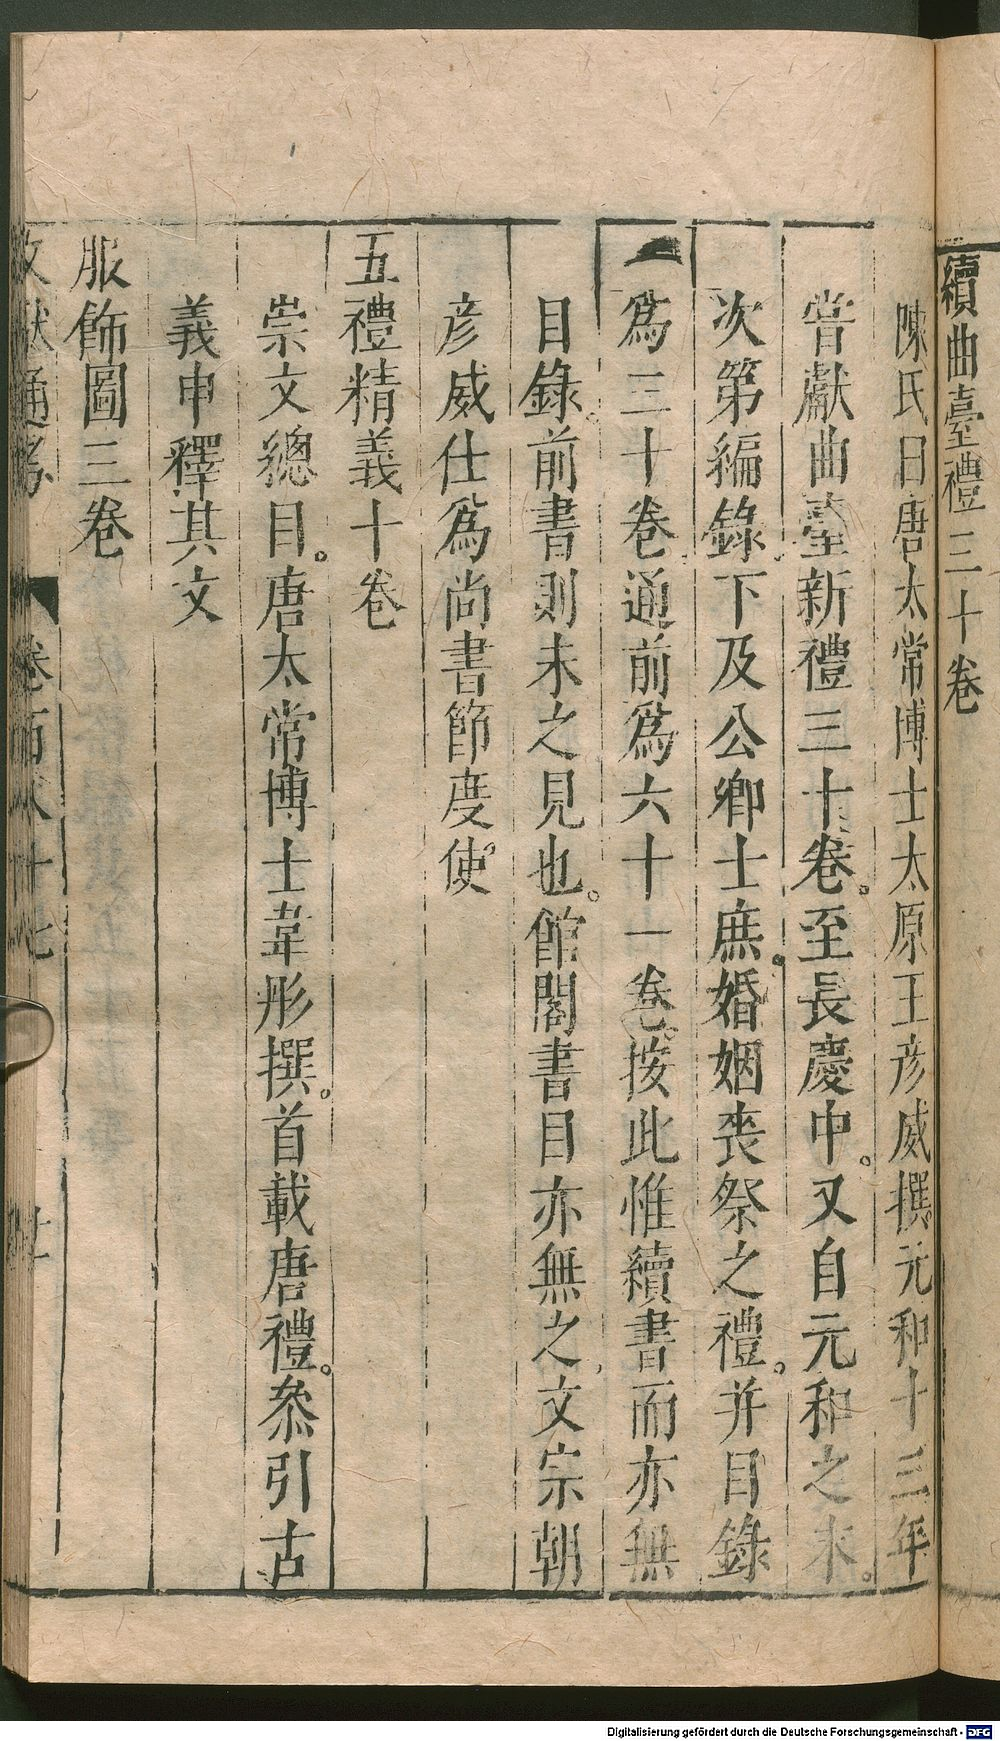 續曲臺禮三十卷
陳氏曰唐太常博士太原王彦威撰元和十三年
甞獻曲臺新禮三十卷。至長慶中。又自元和之末。
次第編錄下及公卿士庶婚姻喪祭之禮。并目錄
爲三十卷通前爲六十一卷。按此惟續書而亦無
目錄。前書則未之見也。館閣書目亦無之文宗朝
彦威仕爲尚書節度使。
五禮精義十卷
崇文總目。唐太常博士韋彤撰。首載唐禮。叅引古
義申釋其文
服飾圖三卷
文獻通考 卷百八十七
Digitalisierung gefördert durch die Deutsche Forschungsgemeinschaft - DFG